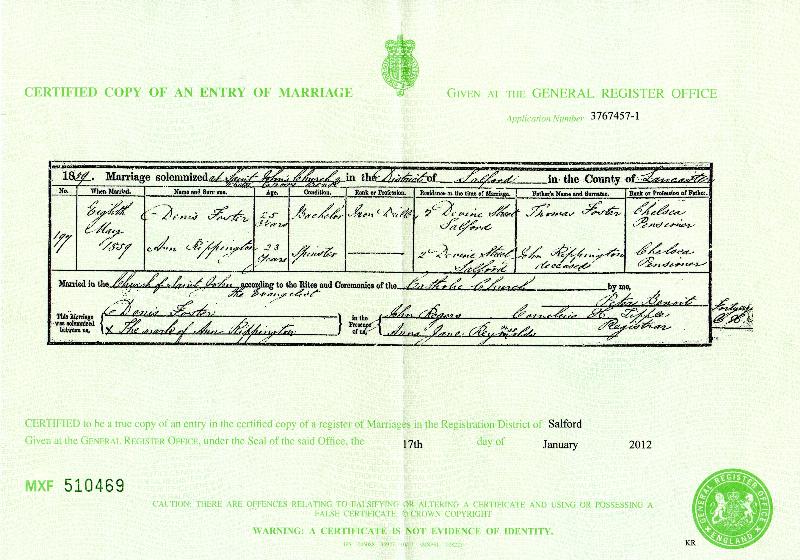 CERTIFIED COPY OF AN ENTRY OF MARRIAGE
GIVEN AT THE GENERAL REGISTER OFFICE
Application Number 3767457-1
1859. Marriage solemnized at Saint John's Church in the District of Salford in the County of Lancaster
No. When Married. Name and Surname. Age. Condition. Rank or Profession. Residence at the time of Marriage. Father's Name and Surname. Rank or Profession of Father.
197 Eighth May 1859
Denis Foster 25 Years Bachelor 2 Devine Street Salford Thomas Foster Chelsea Pensioner
Ann Rippington 23 Years Spinster 2 Devine Street Salford John Rippington deceased Chelsea Pensioner
Married in the Church of Saint John The Evangelist according to the Rites and Ceremonies of the Catholic Church by me,
This Marriage was solemnized between us, Denis Foster
X The mark of Ann Rippington
in the Presence of us, John Rogers
Anna Jane Reynolds
Peter Benoit
Cornelius H. Tipper Registrar
CERTIFIED to be a true copy of an entry in the certified copy of a register of Marriages in the Registration District of Salford
Given at the GENERAL REGISTER OFFICE, under the Seal of the said Office, the 17th day of January 2012
MXF 510469
CAUTION: THERE ARE OFFENCES RELATING TO FALSIFYING OR ALTERING A CERTIFICATE AND USING OR POSSESSING A
FALSE CERTIFICATE. © CROWN COPYRIGHT
WARNING: A CERTIFICATE IS NOT EVIDENCE OF IDENTITY.
GENERAL REGISTER OFFICE
ENGLAND
KR